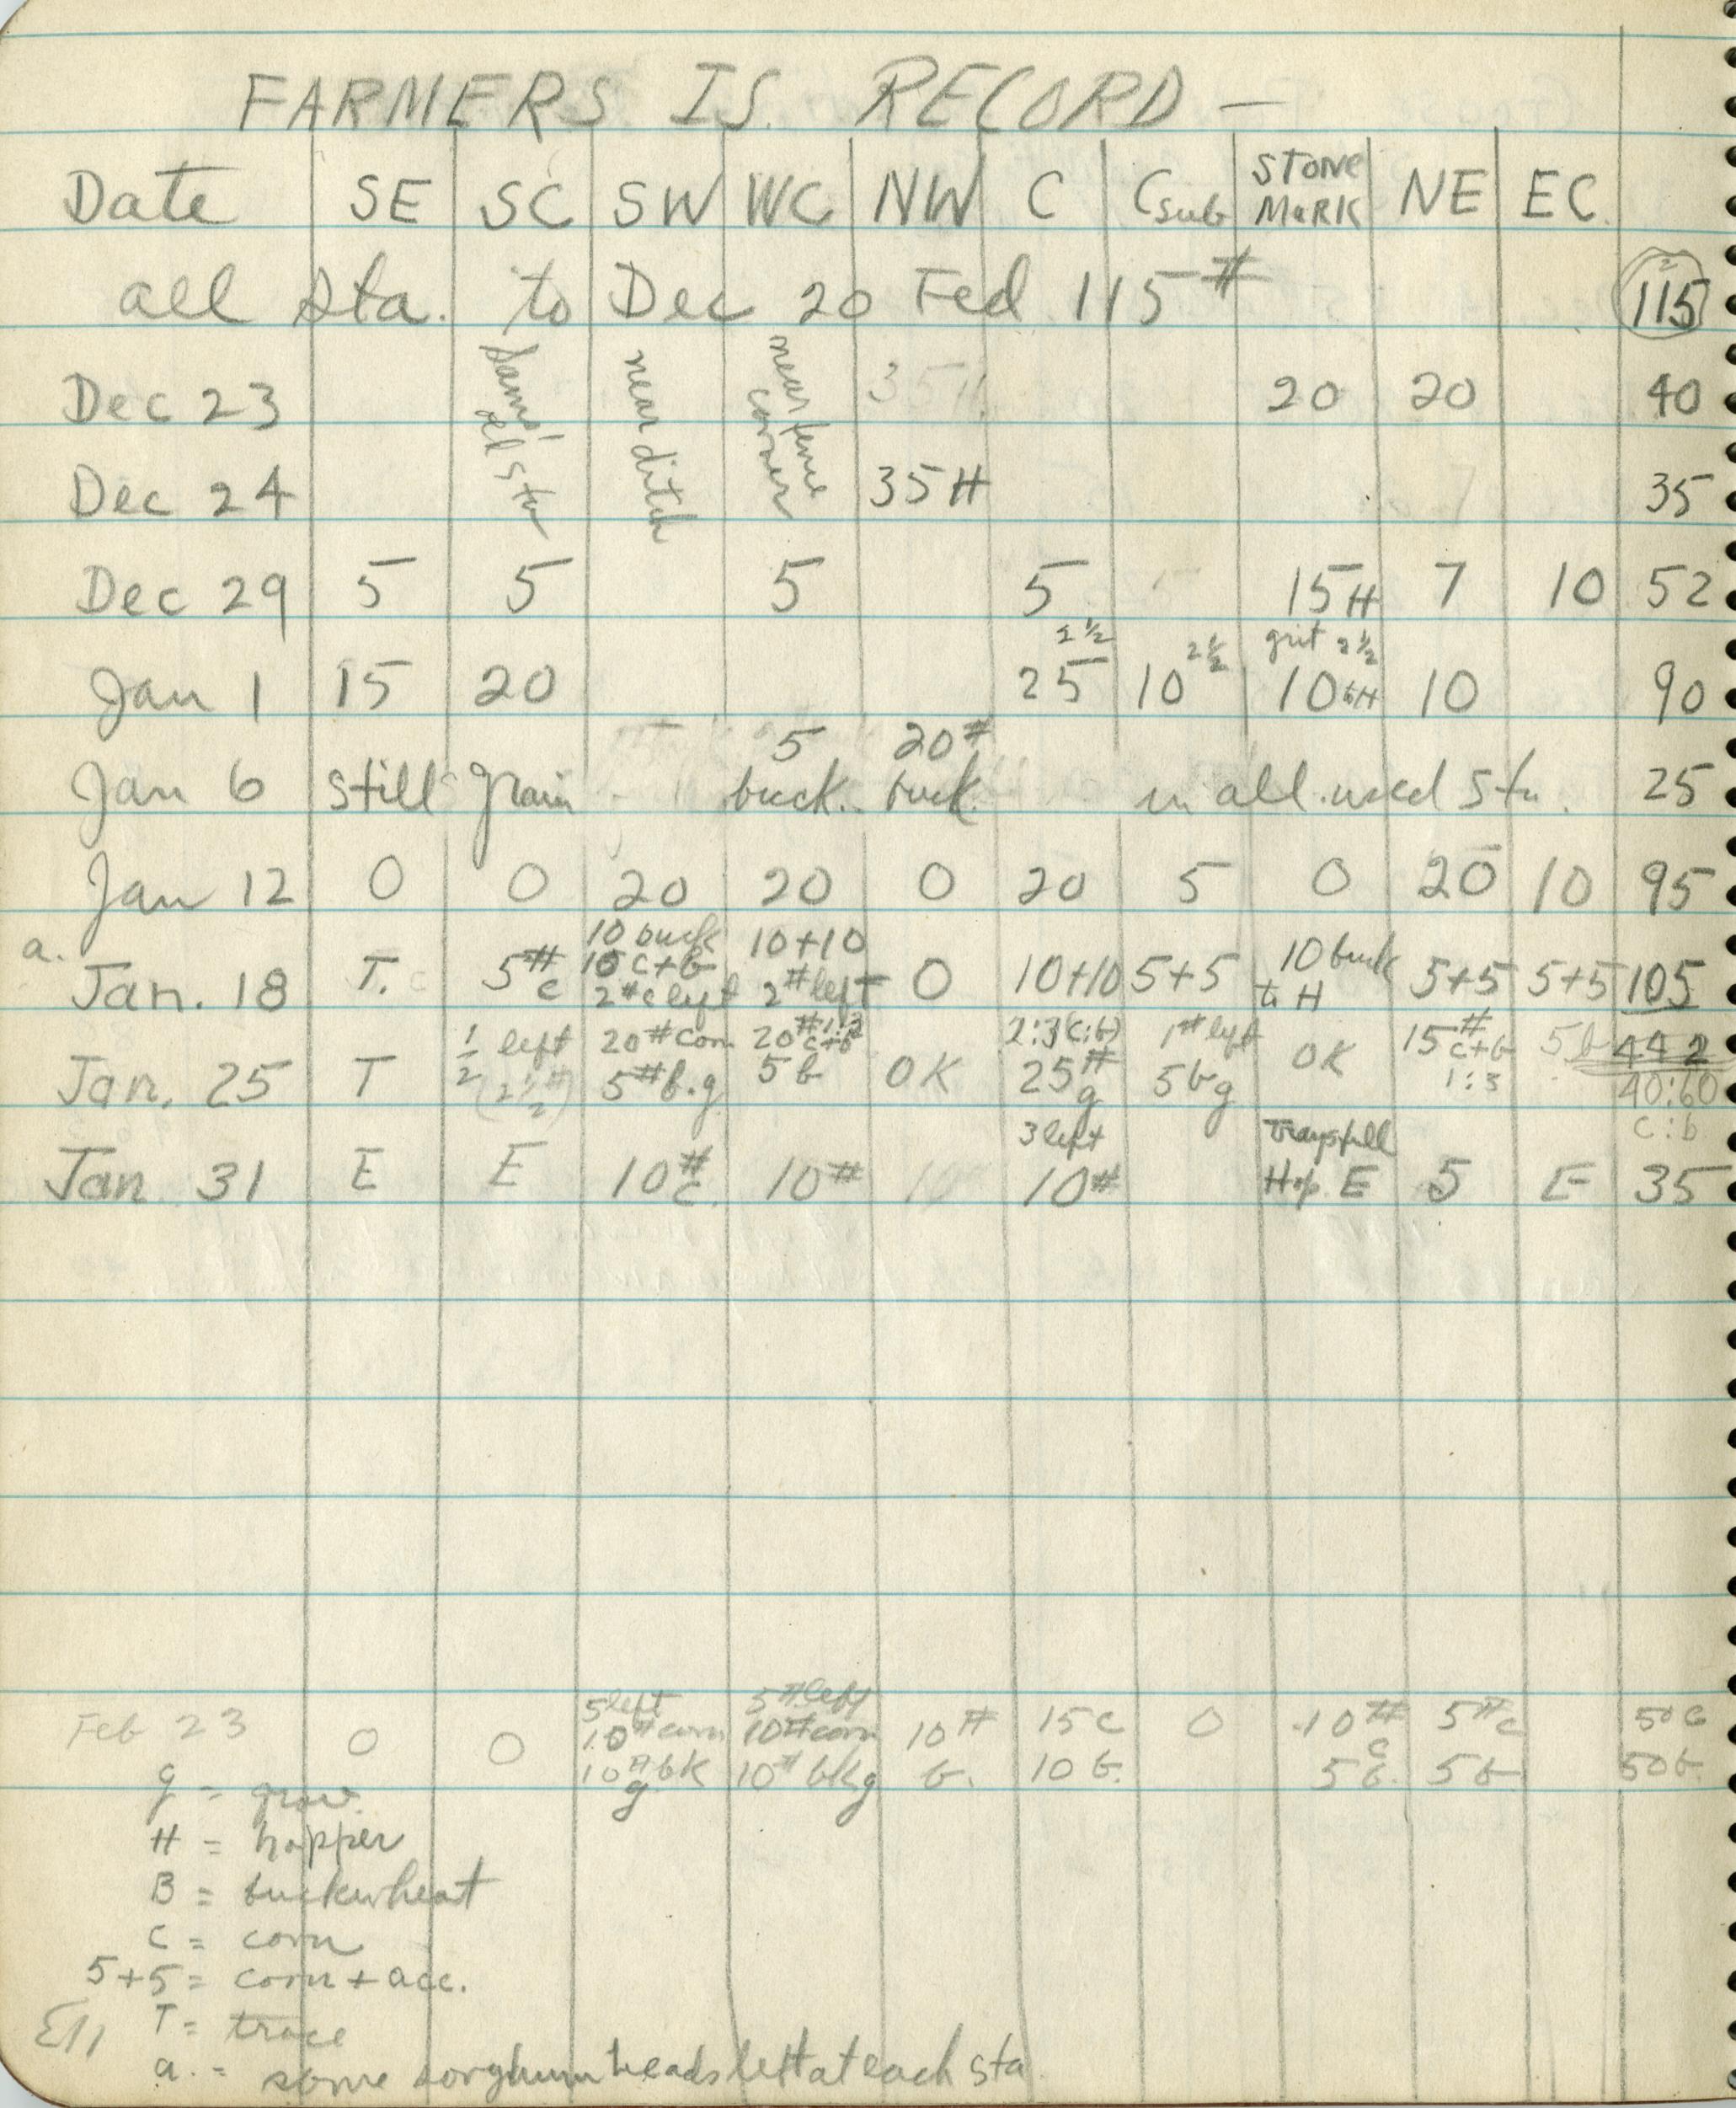 FARMERS IS. RECORD —
Date SE SC SW WC NW C Csub STONE MARK NE EC.
all sta. to Dec 20 Fed 115# 115
Dec 23 near ditch near fence corner 35H 20 20 40
Dec 24 35H 35
Dec 29 5 5 5 5 15H 7 10 52
2½ 2½ grit 2½
Jan 1 15 20 25 10 10 to H 10 90
5 20#
Jan 6 still grain buck. buck. in all used sta. 25
Jan 12 0 0 20 20 0 20 5 0 20 10 95
a. 10 buck 10+10
Jan. 18 T. 5# c 10 c+b 2# c left 2# left 0 10+10 5+5 10 buck to H 5+5 5+5 105
½ left 20# corn 20# 1:3 c+b 2:3 (c:b) 1# left OK 15# c+b 5b 442
Jan. 25 T (2½#) 5# b.g 5b OK 25# g 5bg 1:3 40:60
3 left Trays full c:b
Jan. 31 E E 10# c. 10# 10# Hop E 5 E 35
5 left 5# left
Feb 23 0 0 10# corn 10# corn 10# 15c 0 10# c 5# c 50c
10# bk g 10# bkg b. 10b. 5b. 5b 50b.
g =
H = hopper
B = buckwheat
C = corn
5+5 = corn + acc.
T = trace
a. = some sorghum heads left at each sta